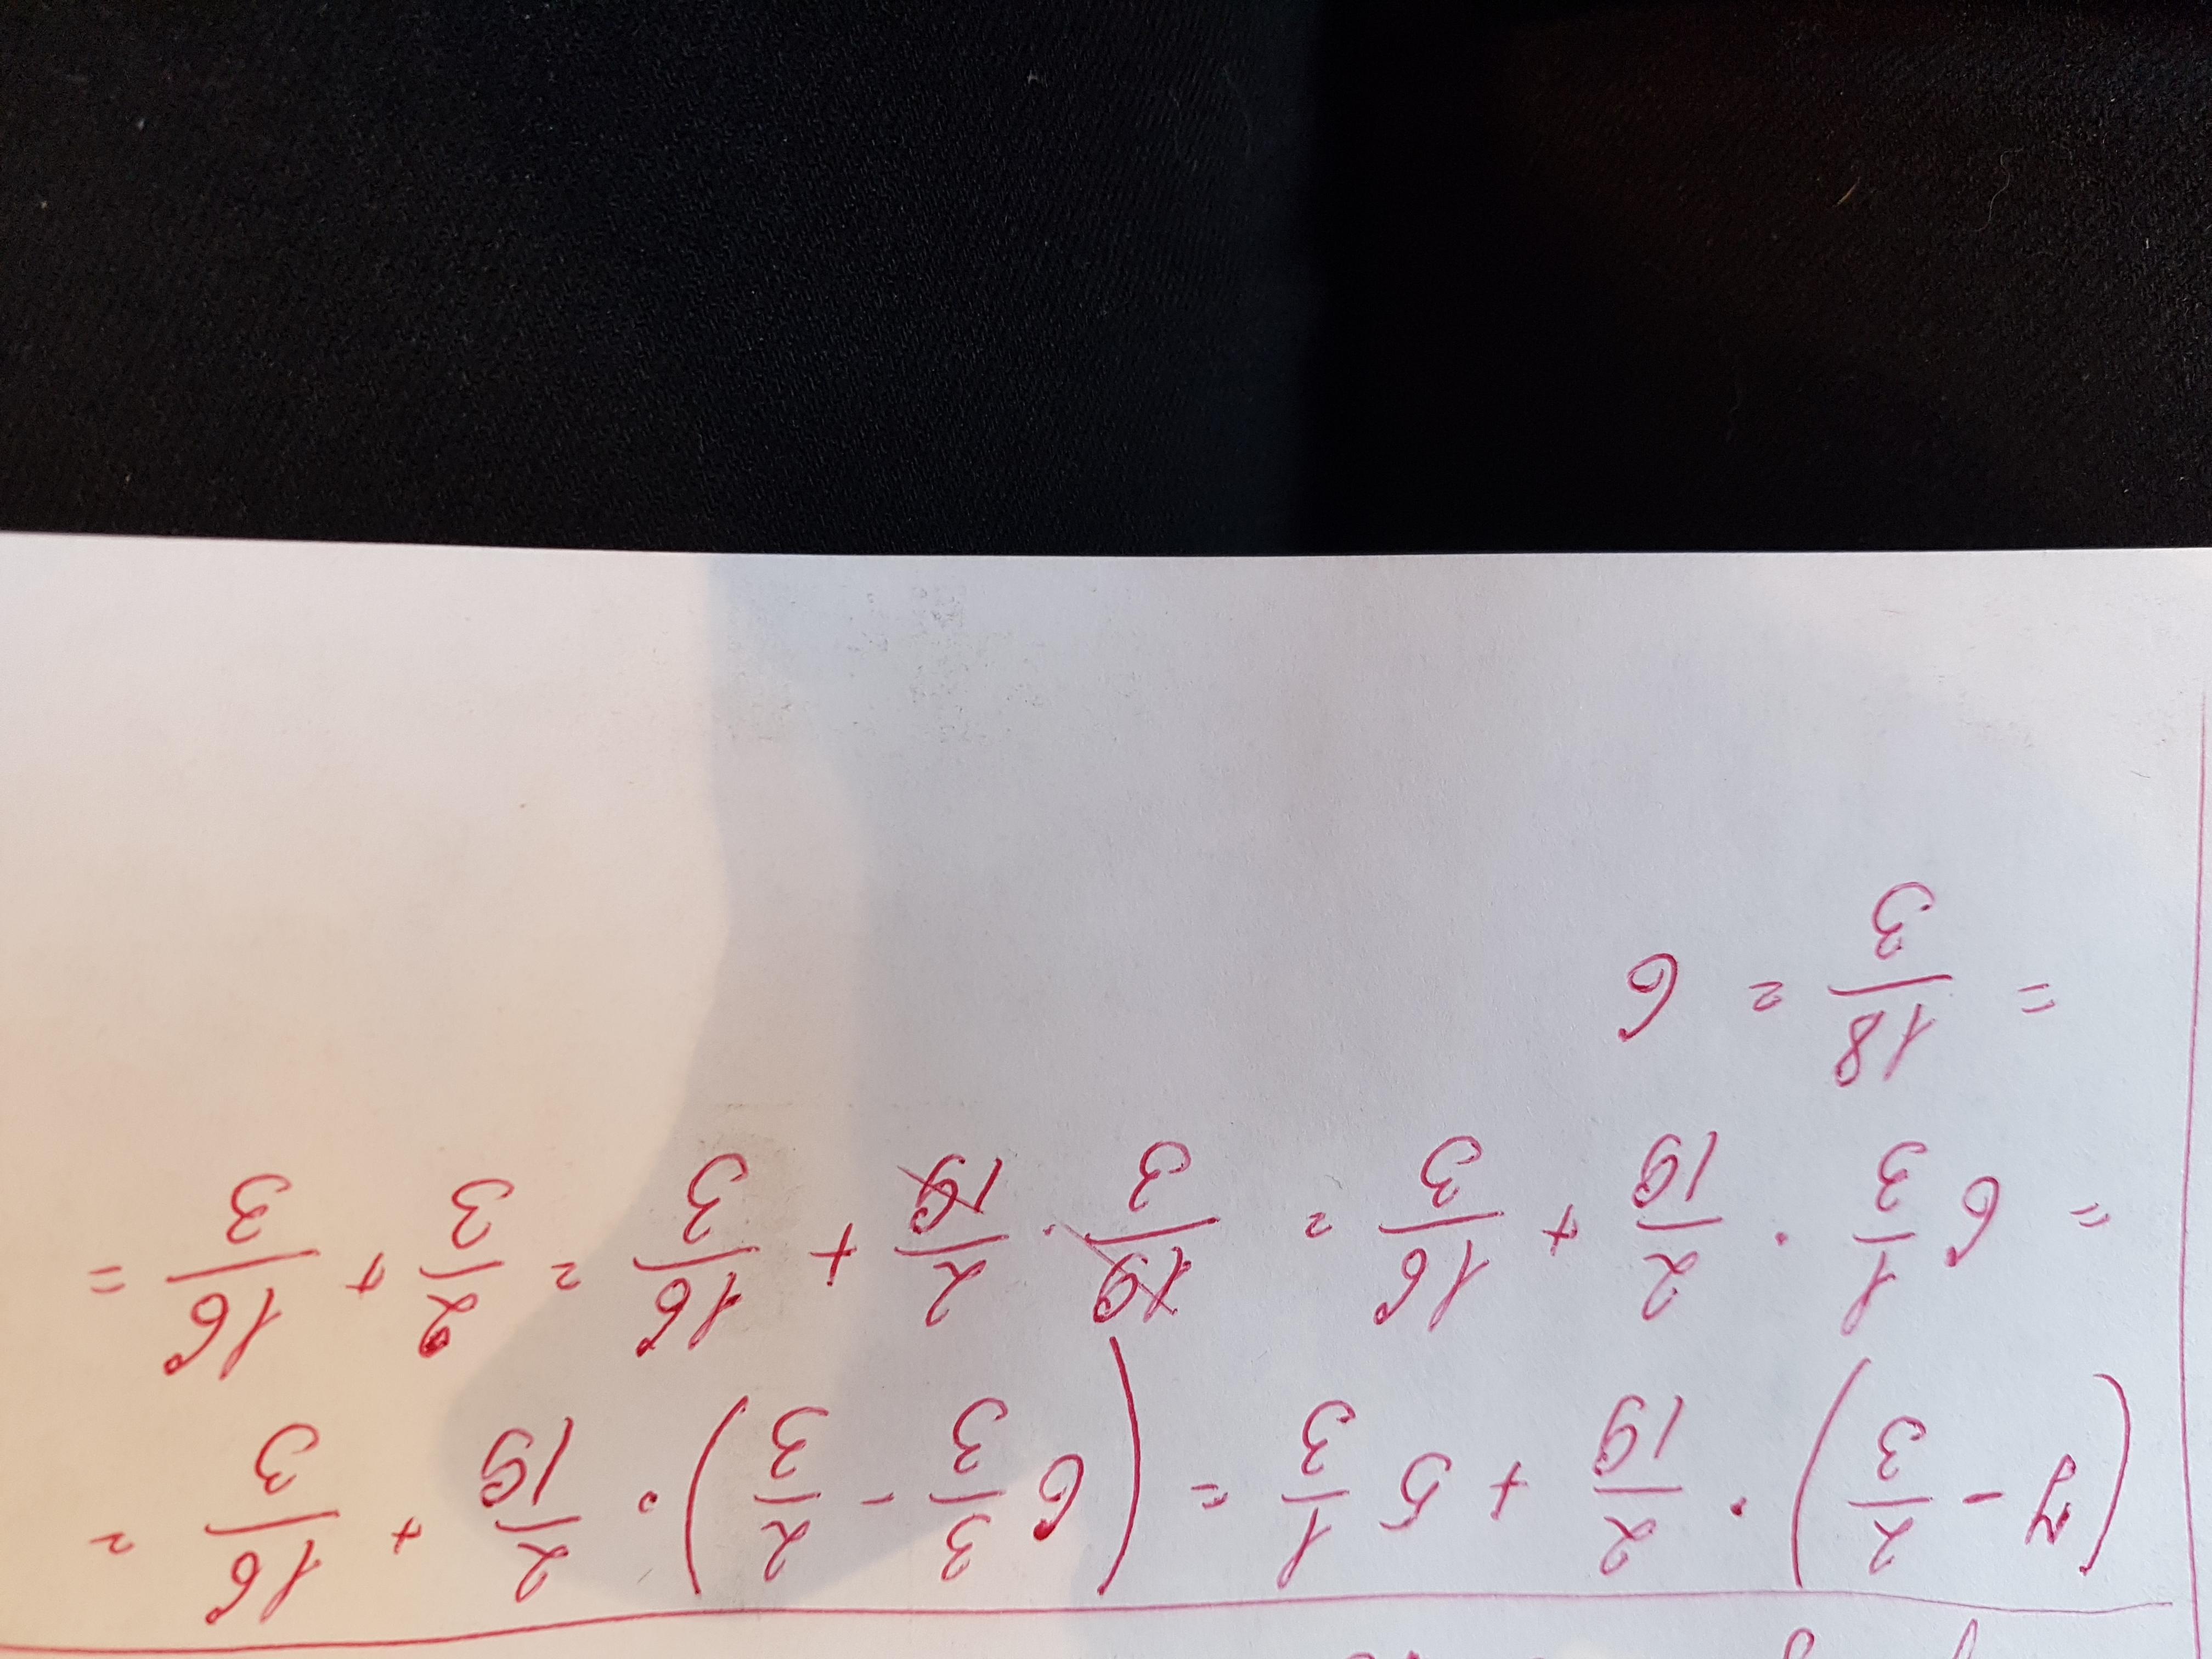 (7 - 2/3) · 2/19 + 5 1/3 = (6 3/3 - 2/3) · 2/19 + 16/3 =
= 6 1/3 · 2/19 + 16/3 = 19/3 · 2/19 + 16/3 = 2/3 + 16/3 =
= 18/3 = 6